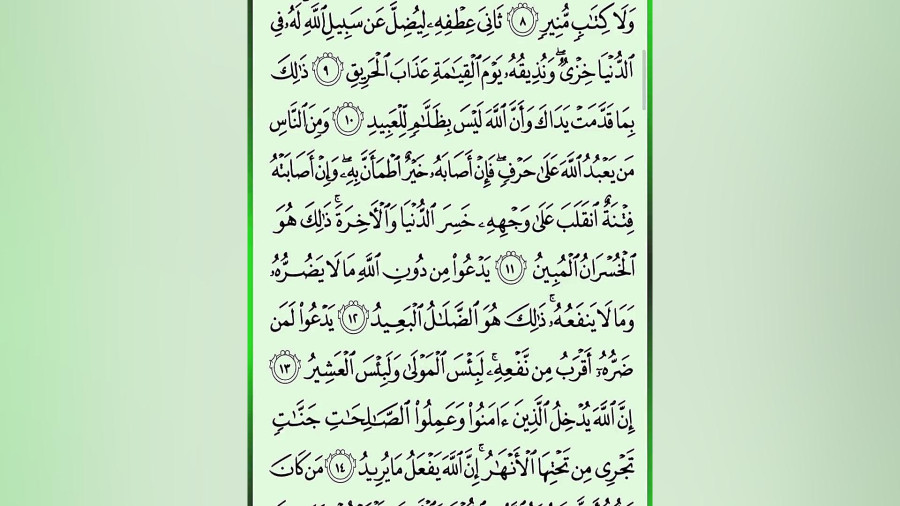 وَلَا كِتَٰبٍ مُّنِيرٍ ٨ ثَانِىَ عِطْفِهِۦ لِيُضِلَّ عَن سَبِيلِ ٱللَّهِ لَهُۥ فِى
ٱلدُّنْيَا خِزْىٌ ۖ وَنُذِيقُهُۥ يَوْمَ ٱلْقِيَٰمَةِ عَذَابَ ٱلْحَرِيقِ ٩ ذَٰلِكَ
بِمَا قَدَّمَتْ يَدَاكَ وَأَنَّ ٱللَّهَ لَيْسَ بِظَلَّٰمٍ لِّلْعَبِيدِ ١٠ وَمِنَ ٱلنَّاسِ
مَن يَعْبُدُ ٱللَّهَ عَلَىٰ حَرْفٍ ۖ فَإِنْ أَصَابَهُۥ خَيْرٌ ٱطْمَأَنَّ بِهِۦ ۖ وَإِنْ أَصَابَتْهُ
فِتْنَةٌ ٱنقَلَبَ عَلَىٰ وَجْهِهِۦ خَسِرَ ٱلدُّنْيَا وَٱلْءَاخِرَةَ ۚ ذَٰلِكَ هُوَ
ٱلْخُسْرَانُ ٱلْمُبِينُ ١١ يَدْعُوا۟ مِن دُونِ ٱللَّهِ مَا لَا يَضُرُّهُۥ
وَمَا لَا يَنفَعُهُۥ ۚ ذَٰلِكَ هُوَ ٱلضَّلَٰلُ ٱلْبَعِيدُ ١٢ يَدْعُوا۟ لَمَن
ضَرُّهُۥٓ أَقْرَبُ مِن نَّفْعِهِۦ ۚ لَبِئْسَ ٱلْمَوْلَىٰ وَلَبِئْسَ ٱلْعَشِيرُ ١٣
إِنَّ ٱللَّهَ يُدْخِلُ ٱلَّذِينَ ءَامَنُوا۟ وَعَمِلُوا۟ ٱلصَّٰلِحَٰتِ جَنَّٰتٍ
تَجْرِى مِن تَحْتِهَا ٱلْأَنْهَٰرُ ۚ إِنَّ ٱللَّهَ يَفْعَلُ مَا يُرِيدُ ١٤ مَن كَانَ